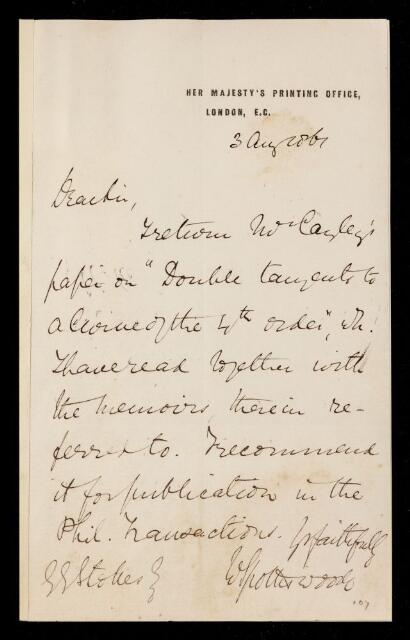 HER MAJESTY'S PRINTING OFFICE,
LONDON, E.C.
3 Aug 1861
Dear Sir,
I return Mr Cayley's
paper on "Double tangents to
a Curve of the 4th order", wh.
I have read together with
the memoirs therein re-
ferred to. I recommend
it for publication in the
Phil. Transactions. Yrs faithfully
GG Stokes W Spottiswoode